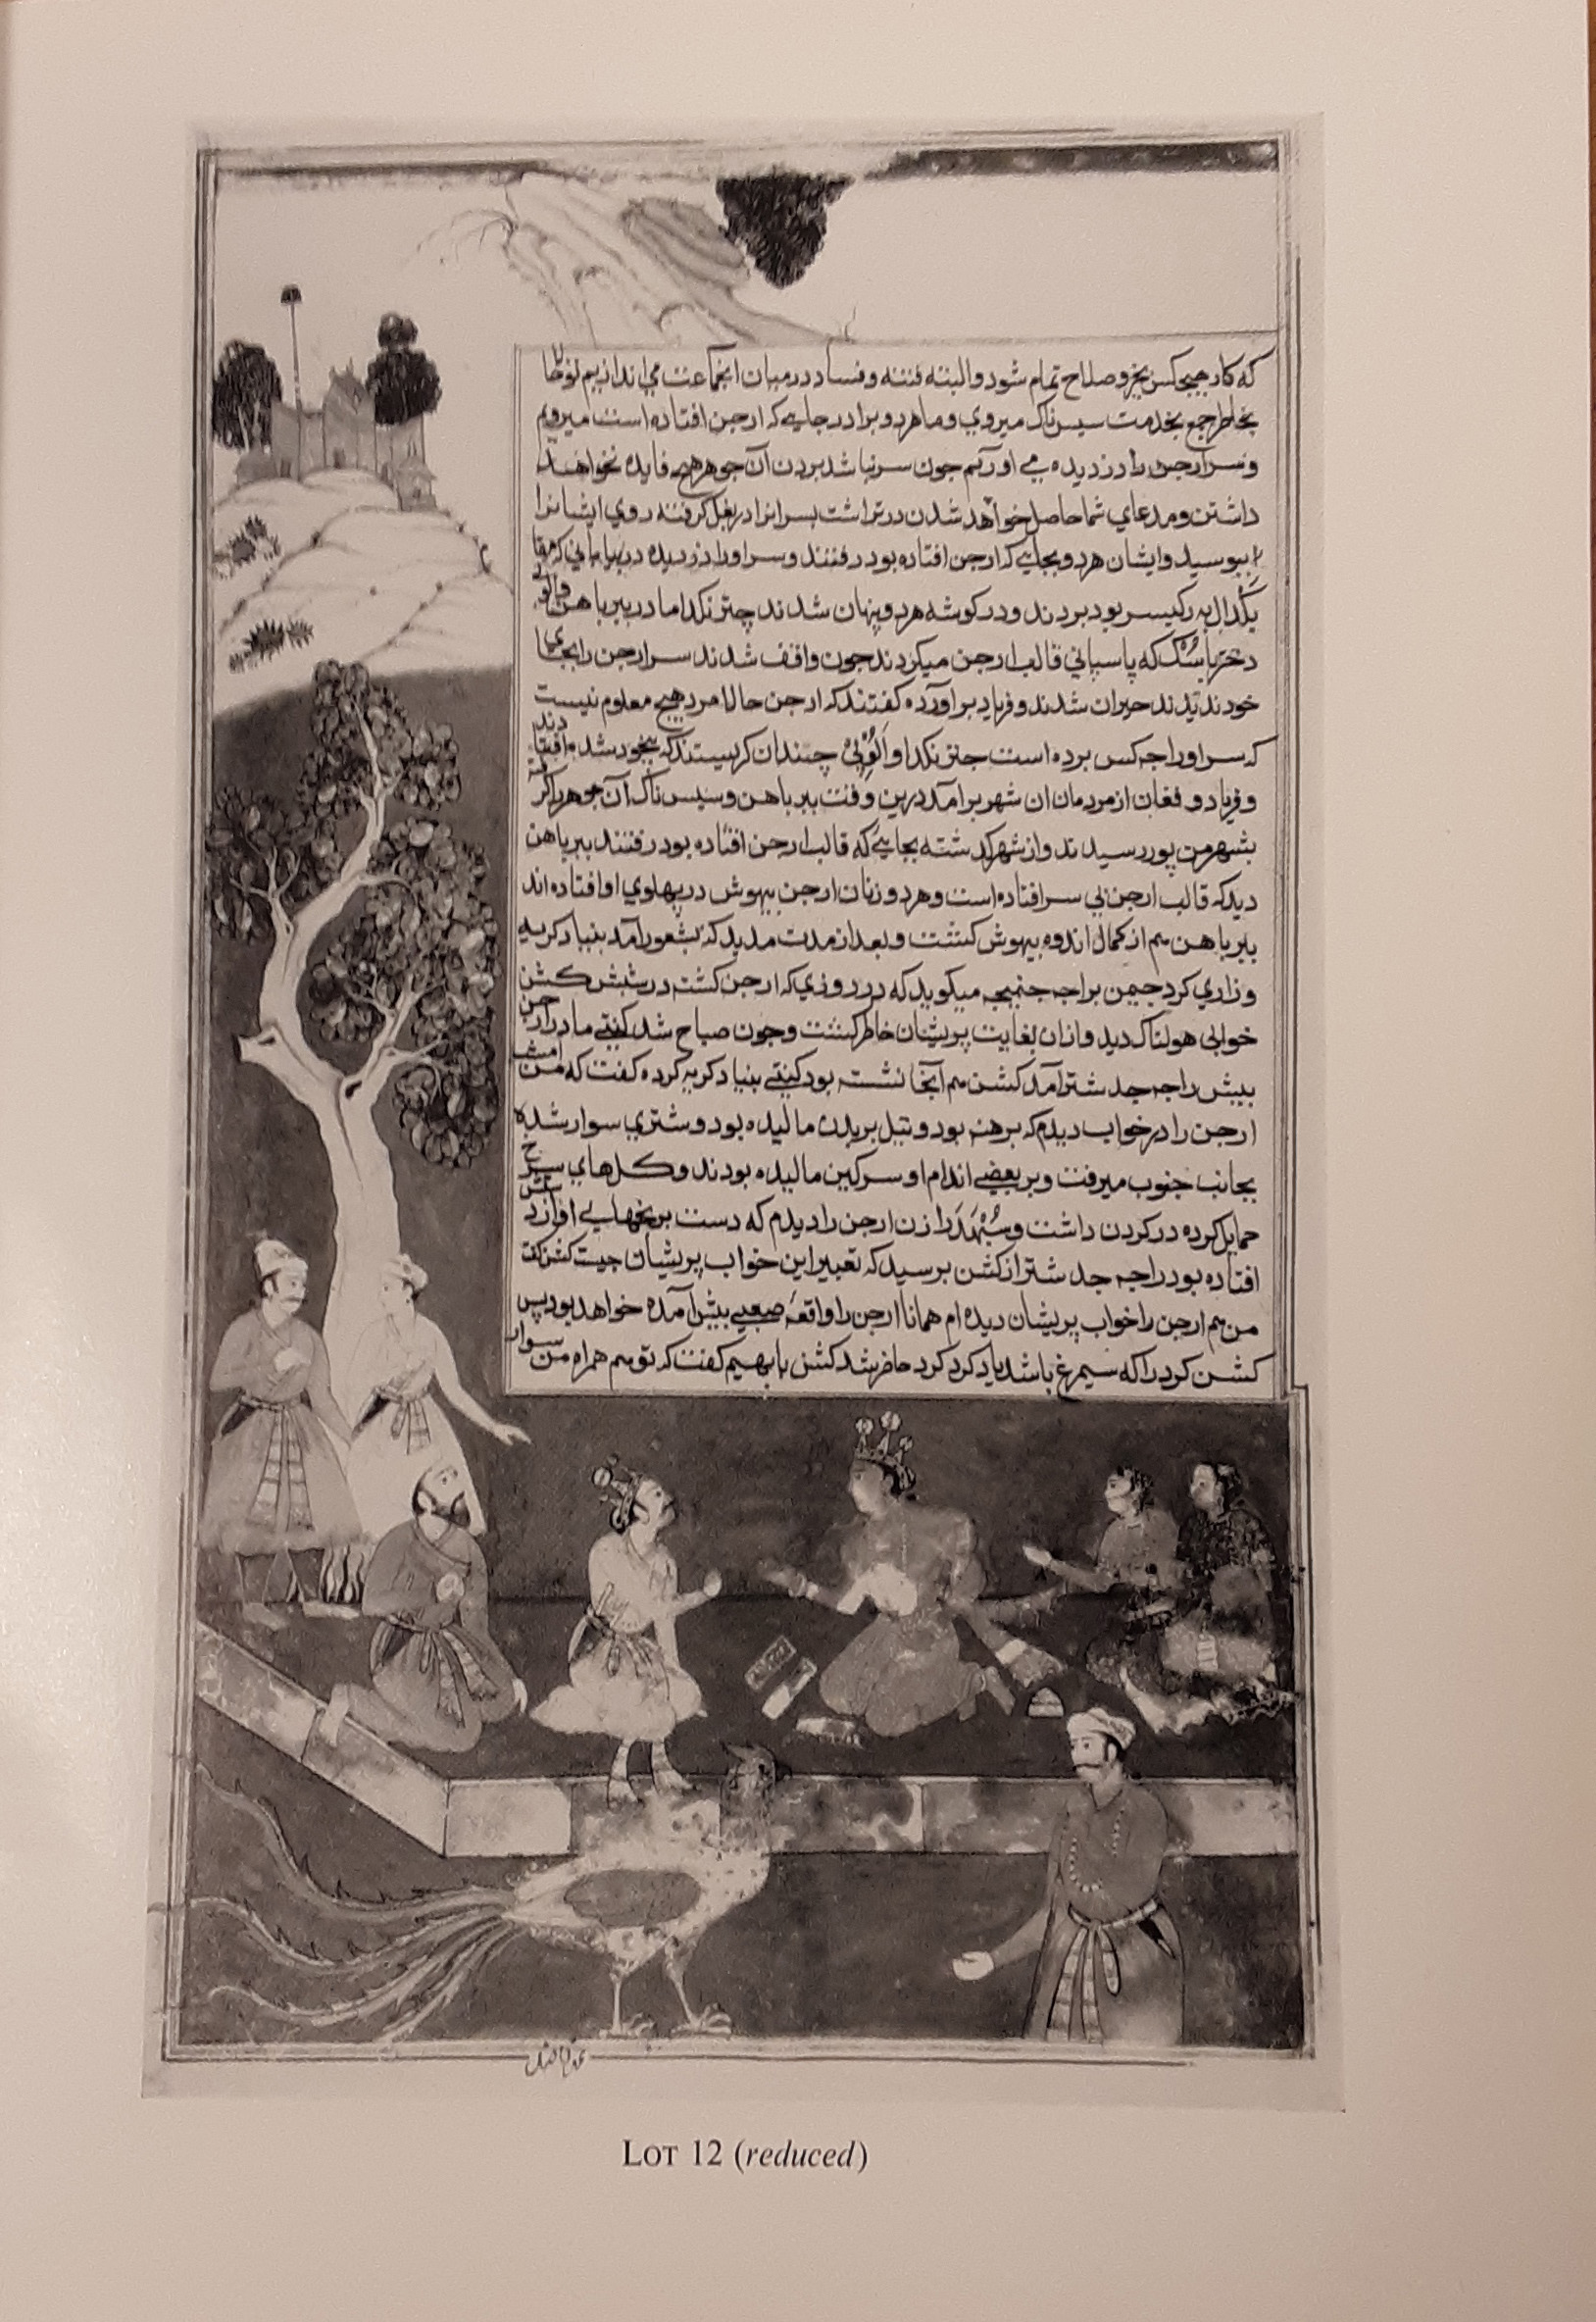 که کار هیچکس بخیر و صلاح تمام شود و البته فتنه و فساد در میان انجماعت می اندازیم تو حالا
بخاطر جمع بخدمت سیس ناک میروی و ما هر دو برادر جایی که ارجن افتاده است میرویم
و سر ارجن را دزدیده می اوریم چون سر نباشد بردن آن جوهر هیچ فایده نخواهد
داشتن و مدعای شما حاصل خواهد شدن درتراشت پسرانرا در بغل کرفته روی ایشانرا
ببوسید و ایشان هر دو بجایی که ارجن افتاده بود رفتند و سر او را دزدیده در بیابانی که مقام
بکدال به رکیسر بود بردند و در کوشه هر دو پنهان شدند چتر نکدا مادر ببر باهن و الوپی
دختر باسک که پاسبانی قالب ارجن میکردند چون واقف شدند سر ارجن را بجای
خود ندیدند حیران شدند و فریاد براورده کفتند که ارجن حالا مرد هیچ معلوم نیست
که سر او را چه کس برده است چتر نکدا و الوپی چندان کریستند که بیخود شده افتادند
و فریاد و فغان از مردمان ان شهر برآمد درین وقت ببر باهن و سیس ناک آن جوهر را کرفته
بشهر من پور رسیدند و از شهر کذشته بجایی که قالب ارجن افتاده بود رفتند ببر باهن
دید که قالب ارجن بی سر افتاده است و هر دو زنان ارجن بیهوش در پهلوی او افتاده اند
ببر باهن هم از کمال اندوه بیهوش کشت و بعد از مدت مدید که بشعور آمد بنیاد کریه
و زاری کرد جیمن براجه جنمیجه میکوید که در روزی که ارجن کشته در شبش کشن
خوابی هولناک دید و ازان بغایت پریشان خاطر کشت و چون صباح شد کنتی مادر ارجن
پیش راجه جدشتر آمد کشن هم آنجا نشسته بود کنتی بنیاد کریه کرده کفت که من امشب
ارجن را در خواب دیدم که برهنه بود و تیل بر بدن مالیده بود و شتری سوار شده
بجانب جنوب میرفت و بر بعضی اندام او سرکین مالیده بودند و کلهای سرخ
حمایل کرده در کردن داشت و سبهدرا زن ارجن را دیدم که دست برنجهایی او از دستش
افتاده بود راجه جدشتر از کشن پرسید که تعبیر این خواب پریشان چیست کشن کفت
من هم ارجن را خواب پریشان دیده ام همانا ارجن را واقعهٔ صعبی پیش آمده خواهد بود پس
کشن کرد را که سیمرغ باشد یاد کرد کرد حاضر شد کشن با بهیم کفت که تو هم همراه من سوار
LOT 12 (reduced)